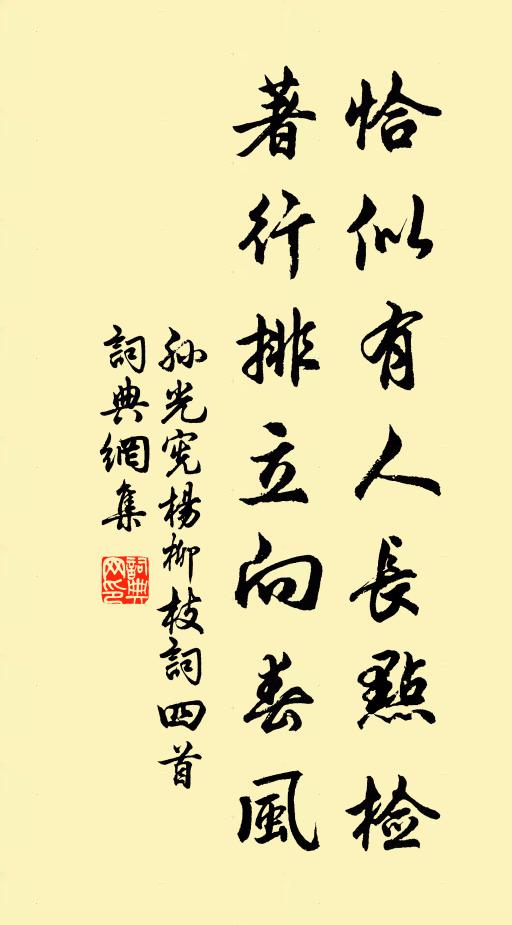 恰似有人長點檢
著行排立向春風
孫光憲楊柳枝詞四首
詞典網集
詞典網印